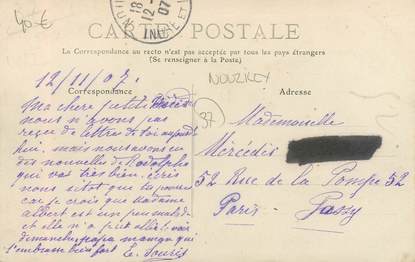 40€
18
12 -
07
INDRE ET
CARTE POSTALE
La Correspondance au recto n'est pas acceptée par tous les pays étrangers
(Se renseigner à la Poste)
Correspondance
Adresse
12/11/07.
NOUZILLY
37
Ma chere petite
nous n'avons pas
reçue de lettre de toi aujourd
hui, mais nous avons eu
des nouvelles de Rodolphe
qui vas tres bien. Ecris
nous sitot que tu pourras
car je crois que Madame
Albert est un peu malade
et elle n'a peut allé voir
dimanche, papa maman qui
t'embrassent bien fort Le Souris
Mademoiselle
Mércédès
52 Rue de la Pompe 52
Paris - Passy